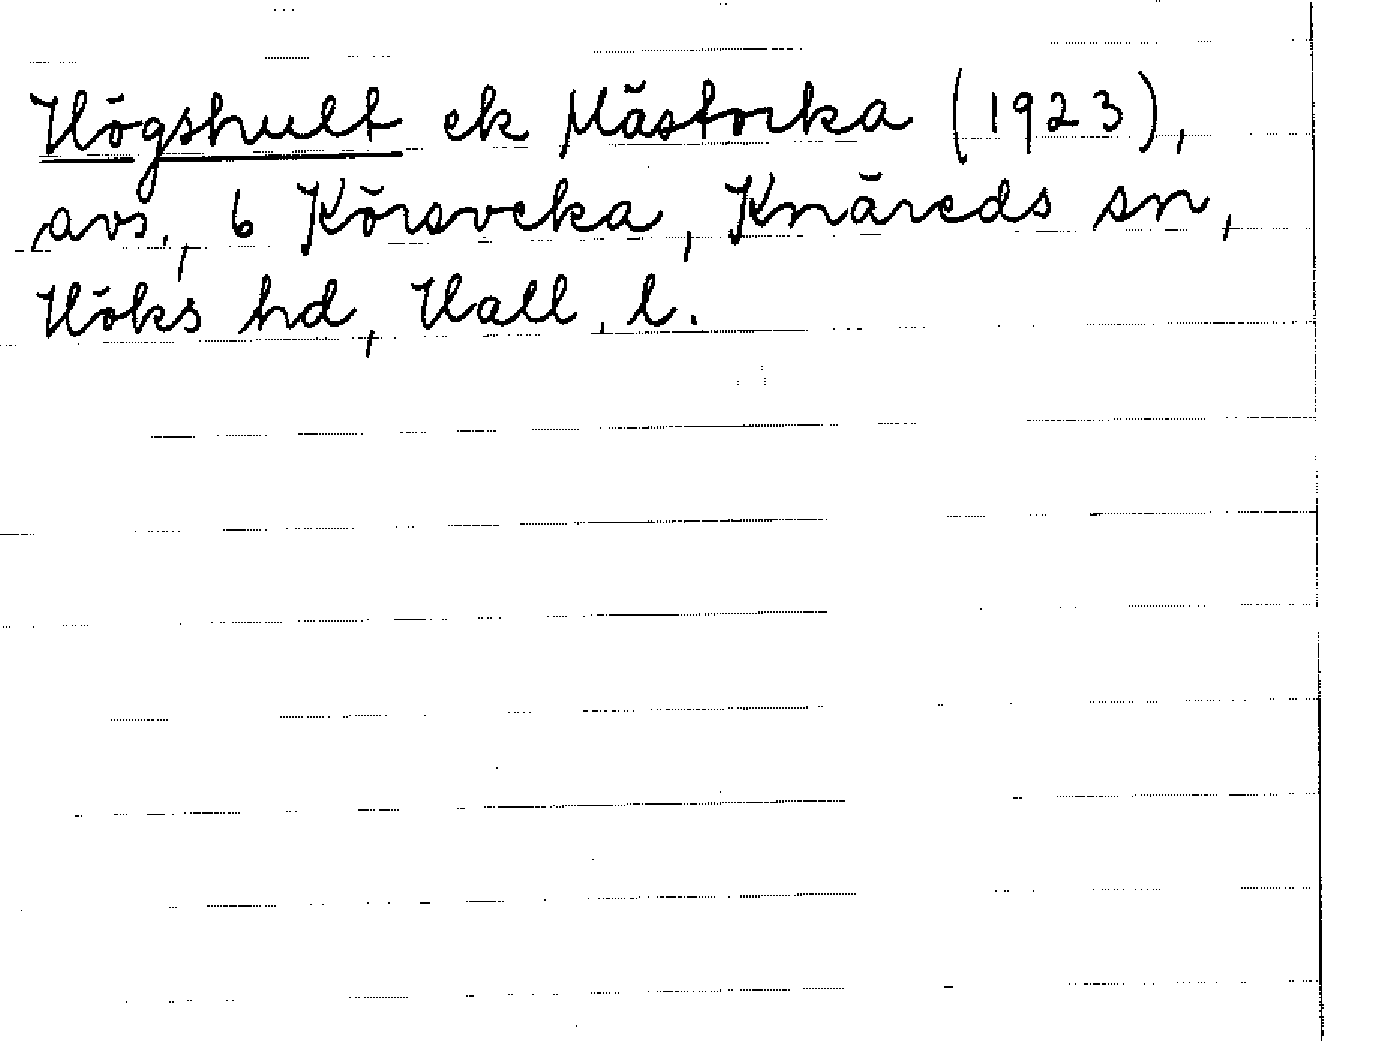 Högshult ek Mästocka (1923),
avs., b Körsveka, Knäreds sn,
Höks hd, Hall. l.